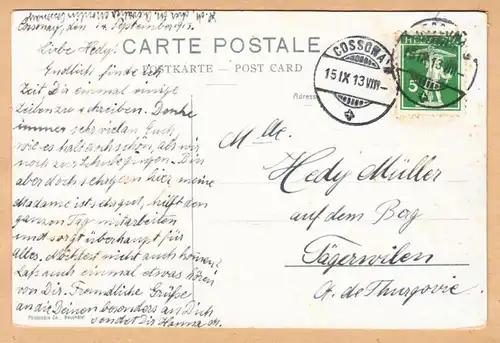 Cossonay, den 14. September 1913.
CARTE POSTALE
POSTKARTE – POST CARD
Liebe Hedy!
Endlich finde ich
Zeit, Dir einmal einige
Zeilen zu schreiben. Denke
immer sehr viel an Euch,
wie es halt auch schön, als wir
noch zur Schule gingen. Bin
aber doch sehr gern hier, meine
Madame ist sehr gut, hilft den
ganzen Tag mitarbeiten
und sorgt überhaupt für
alles. Möchtest nicht auch kommen?
Lass auch einmal etwas hören
von Dir. Freundliche Grüße
an die Deinen besonders an Dich
sendet Dir Hanna
Phototypie Co., Neuchâtel
COSSONAY
15 IX 13 VIII
5
Adresse
Mlle.
Hedy Müller
auf dem Berg
Tägerwilen
Ct. de Thurgovie